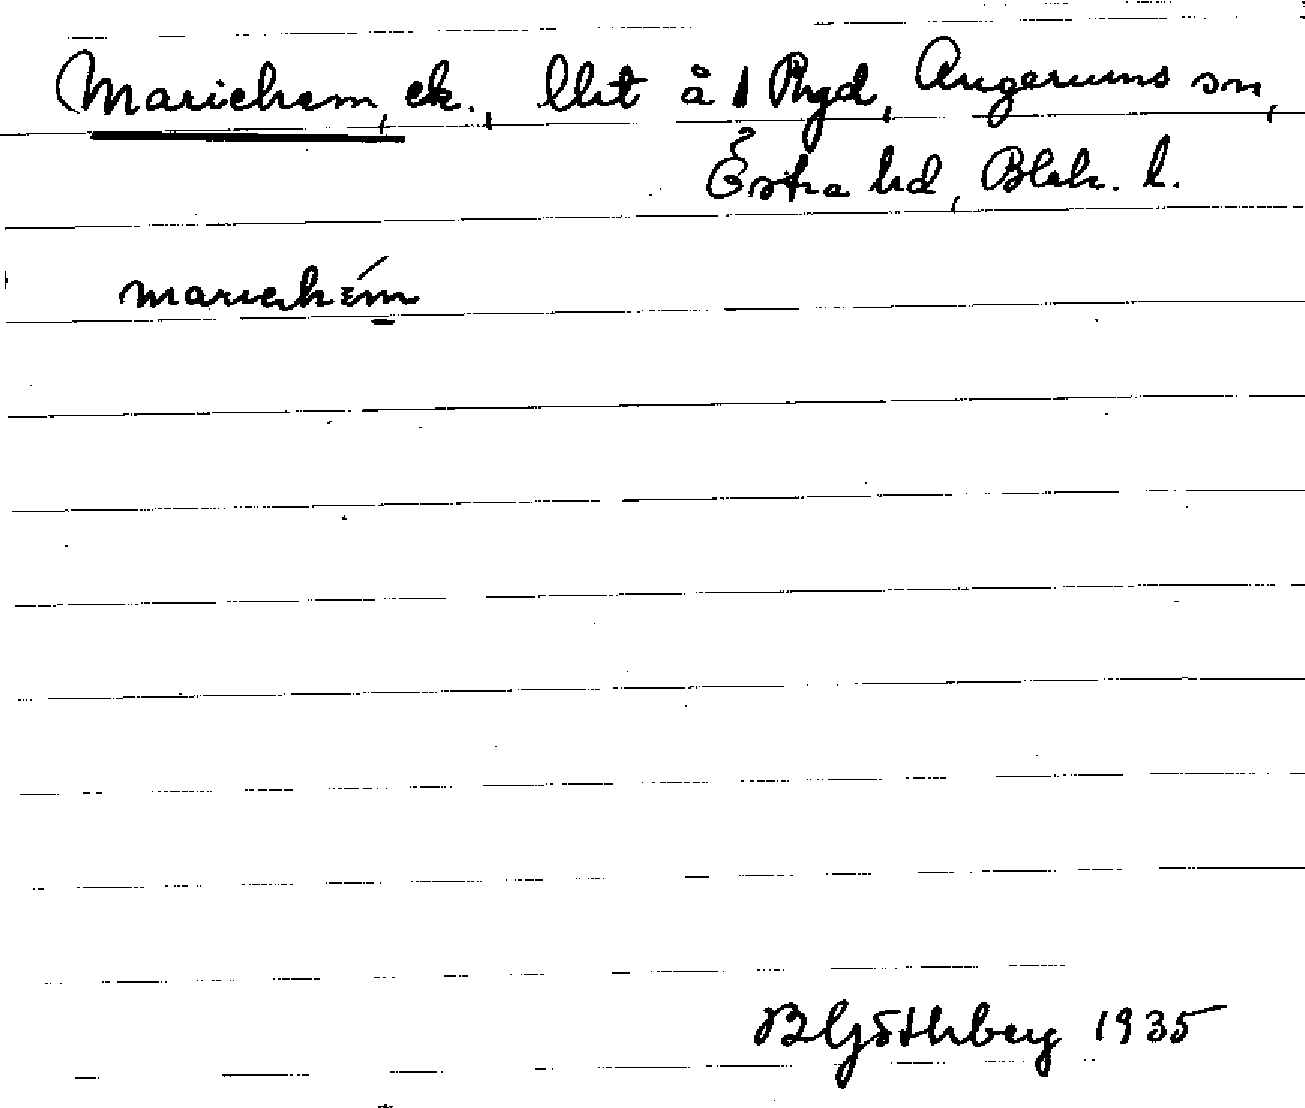 Mariehem, ek., lht å 1 Phgd, Augerums sn,
Östra hd, Blek. l.
mariehém
B Ljöthberg 1935